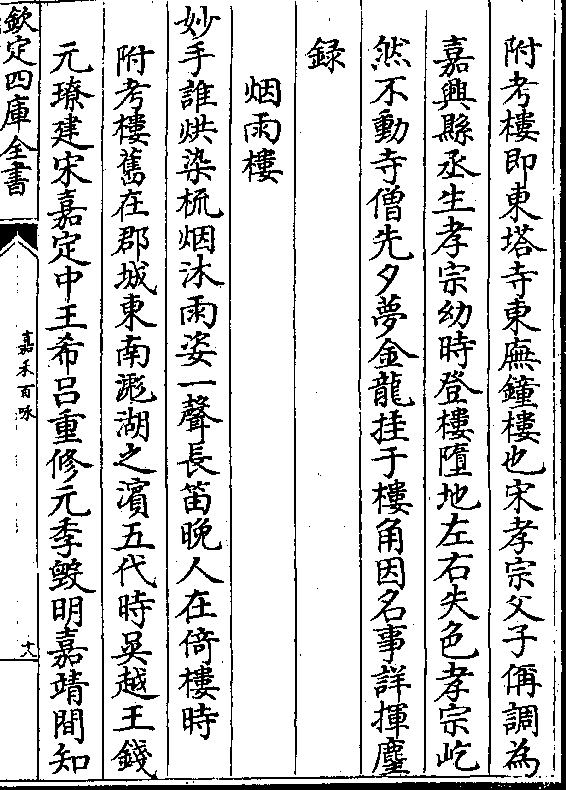 附考樓即東塔寺東廡鐘樓也宋孝宗父子偁調為
嘉興縣丞生孝宗幼時登樓墮地左右失色孝宗屹
然不動寺僧先夕夢金龍挂于樓角因名事詳揮麈
録
烟雨樓
妙手誰烘染梳烟沐雨姿一聲長笛晚人在倚樓時
附考樓舊在郡城東南滮湖之濵五代時吳越王錢
元璙建宋嘉定中王希吕重修元季毀明嘉靖間知
欽定四庫全書
嘉禾百咏